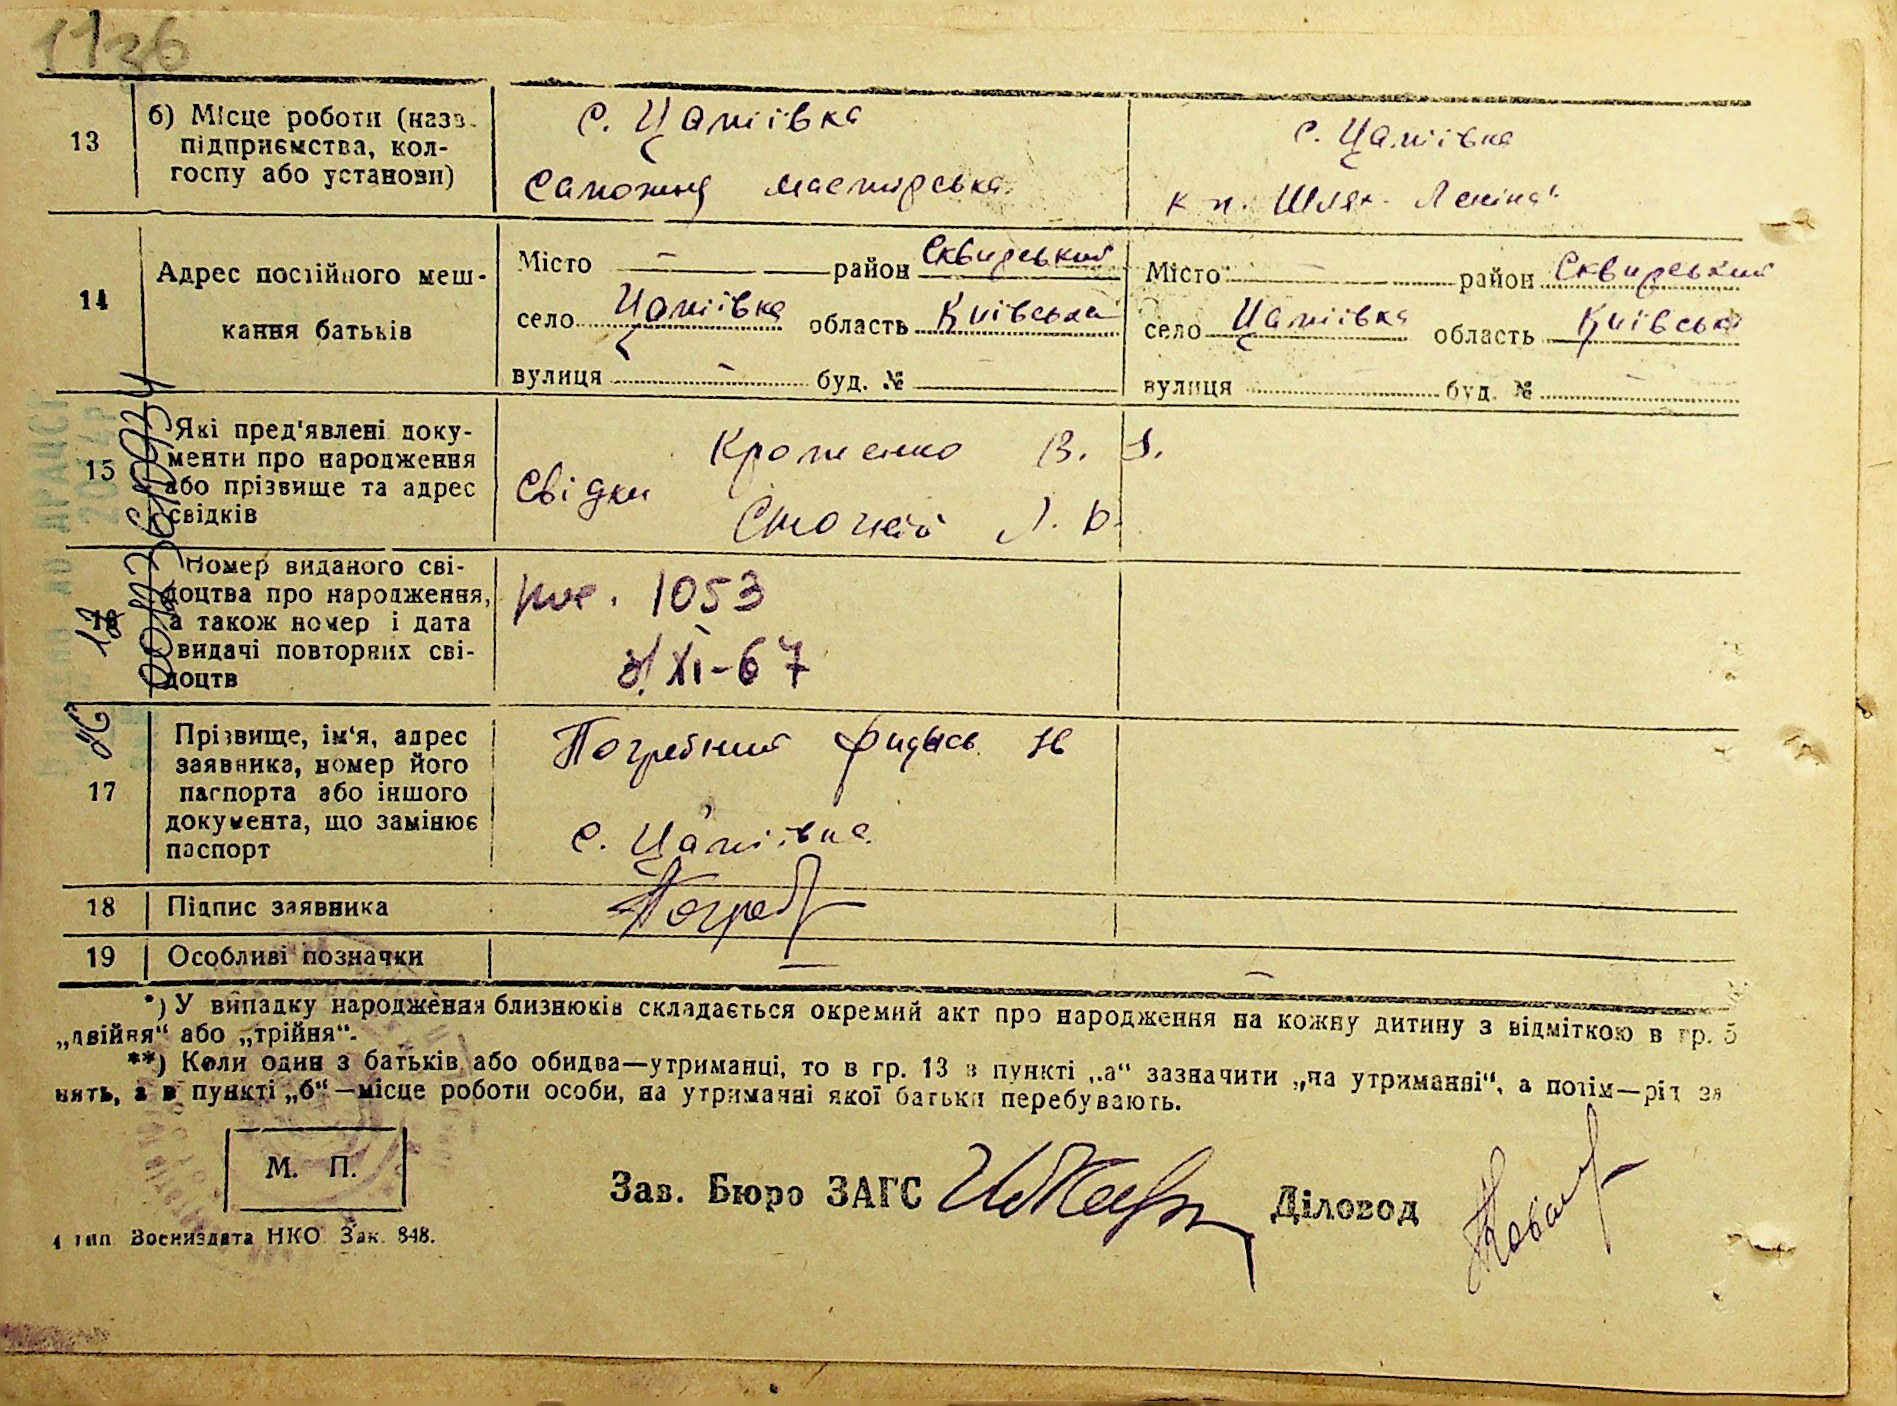 1136
13
б) Місце роботи (назв.
підприємства, кол-
госпу або установи)
с. Цапіївка
Сапожна маєтірська
с. Цапіївка
к п. Шлях Леніна"
14
Адрес постійного меш-
кання батьків
Місто — район Сквирський
село Цапіївка область Київська
вулиця — буд. №
Місто — район Сквирський
село Цапіївка область Київська
вулиця буд. №
15
Які пред'явлені доку-
менти про народження
або прізвище та адрес
свідків
Свідки
В.
16
Номер виданого сві-
доцтва про народження,
а також номер і дата
видачі повторних сві-
доцтв
1053
XI-67
17
Прізвище, ім'я, адрес
заявника, номер його
паспорта або іншого
документа, що замінює
паспорт
Погребний
с. Цапіївка
18
Підпис заявника
Погреб
19
Особливі позначки
— —
*) У випадку народження близнюків складається окремий акт про народження на кожну дитину з відміткою в гр. 5
„двійня“ або „трійня“.
**) Коли один з батьків або обидва—утриманці, то в гр. 13 в пункті „а“ зазначити „на утриманні“, а потім—рід за
нять, а в пункті „б“—місце роботи особи, на утриманні якої батьки перебувають.
М. П.
Зав. Бюро ЗАГС
Діловод
4 тип Воениздата НКО Зак. 848.